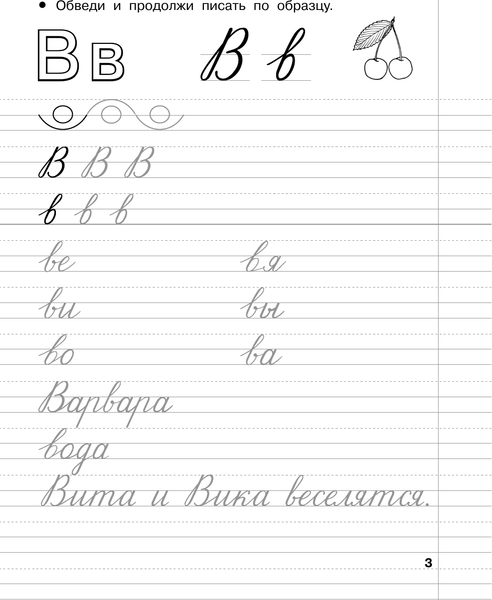 • Обведи и продолжи писать по образцу.
В в В в
В В В
в в в
ве вя
ви вы
во ва
Варвара
вода
Вита и Вика веселятся.
3